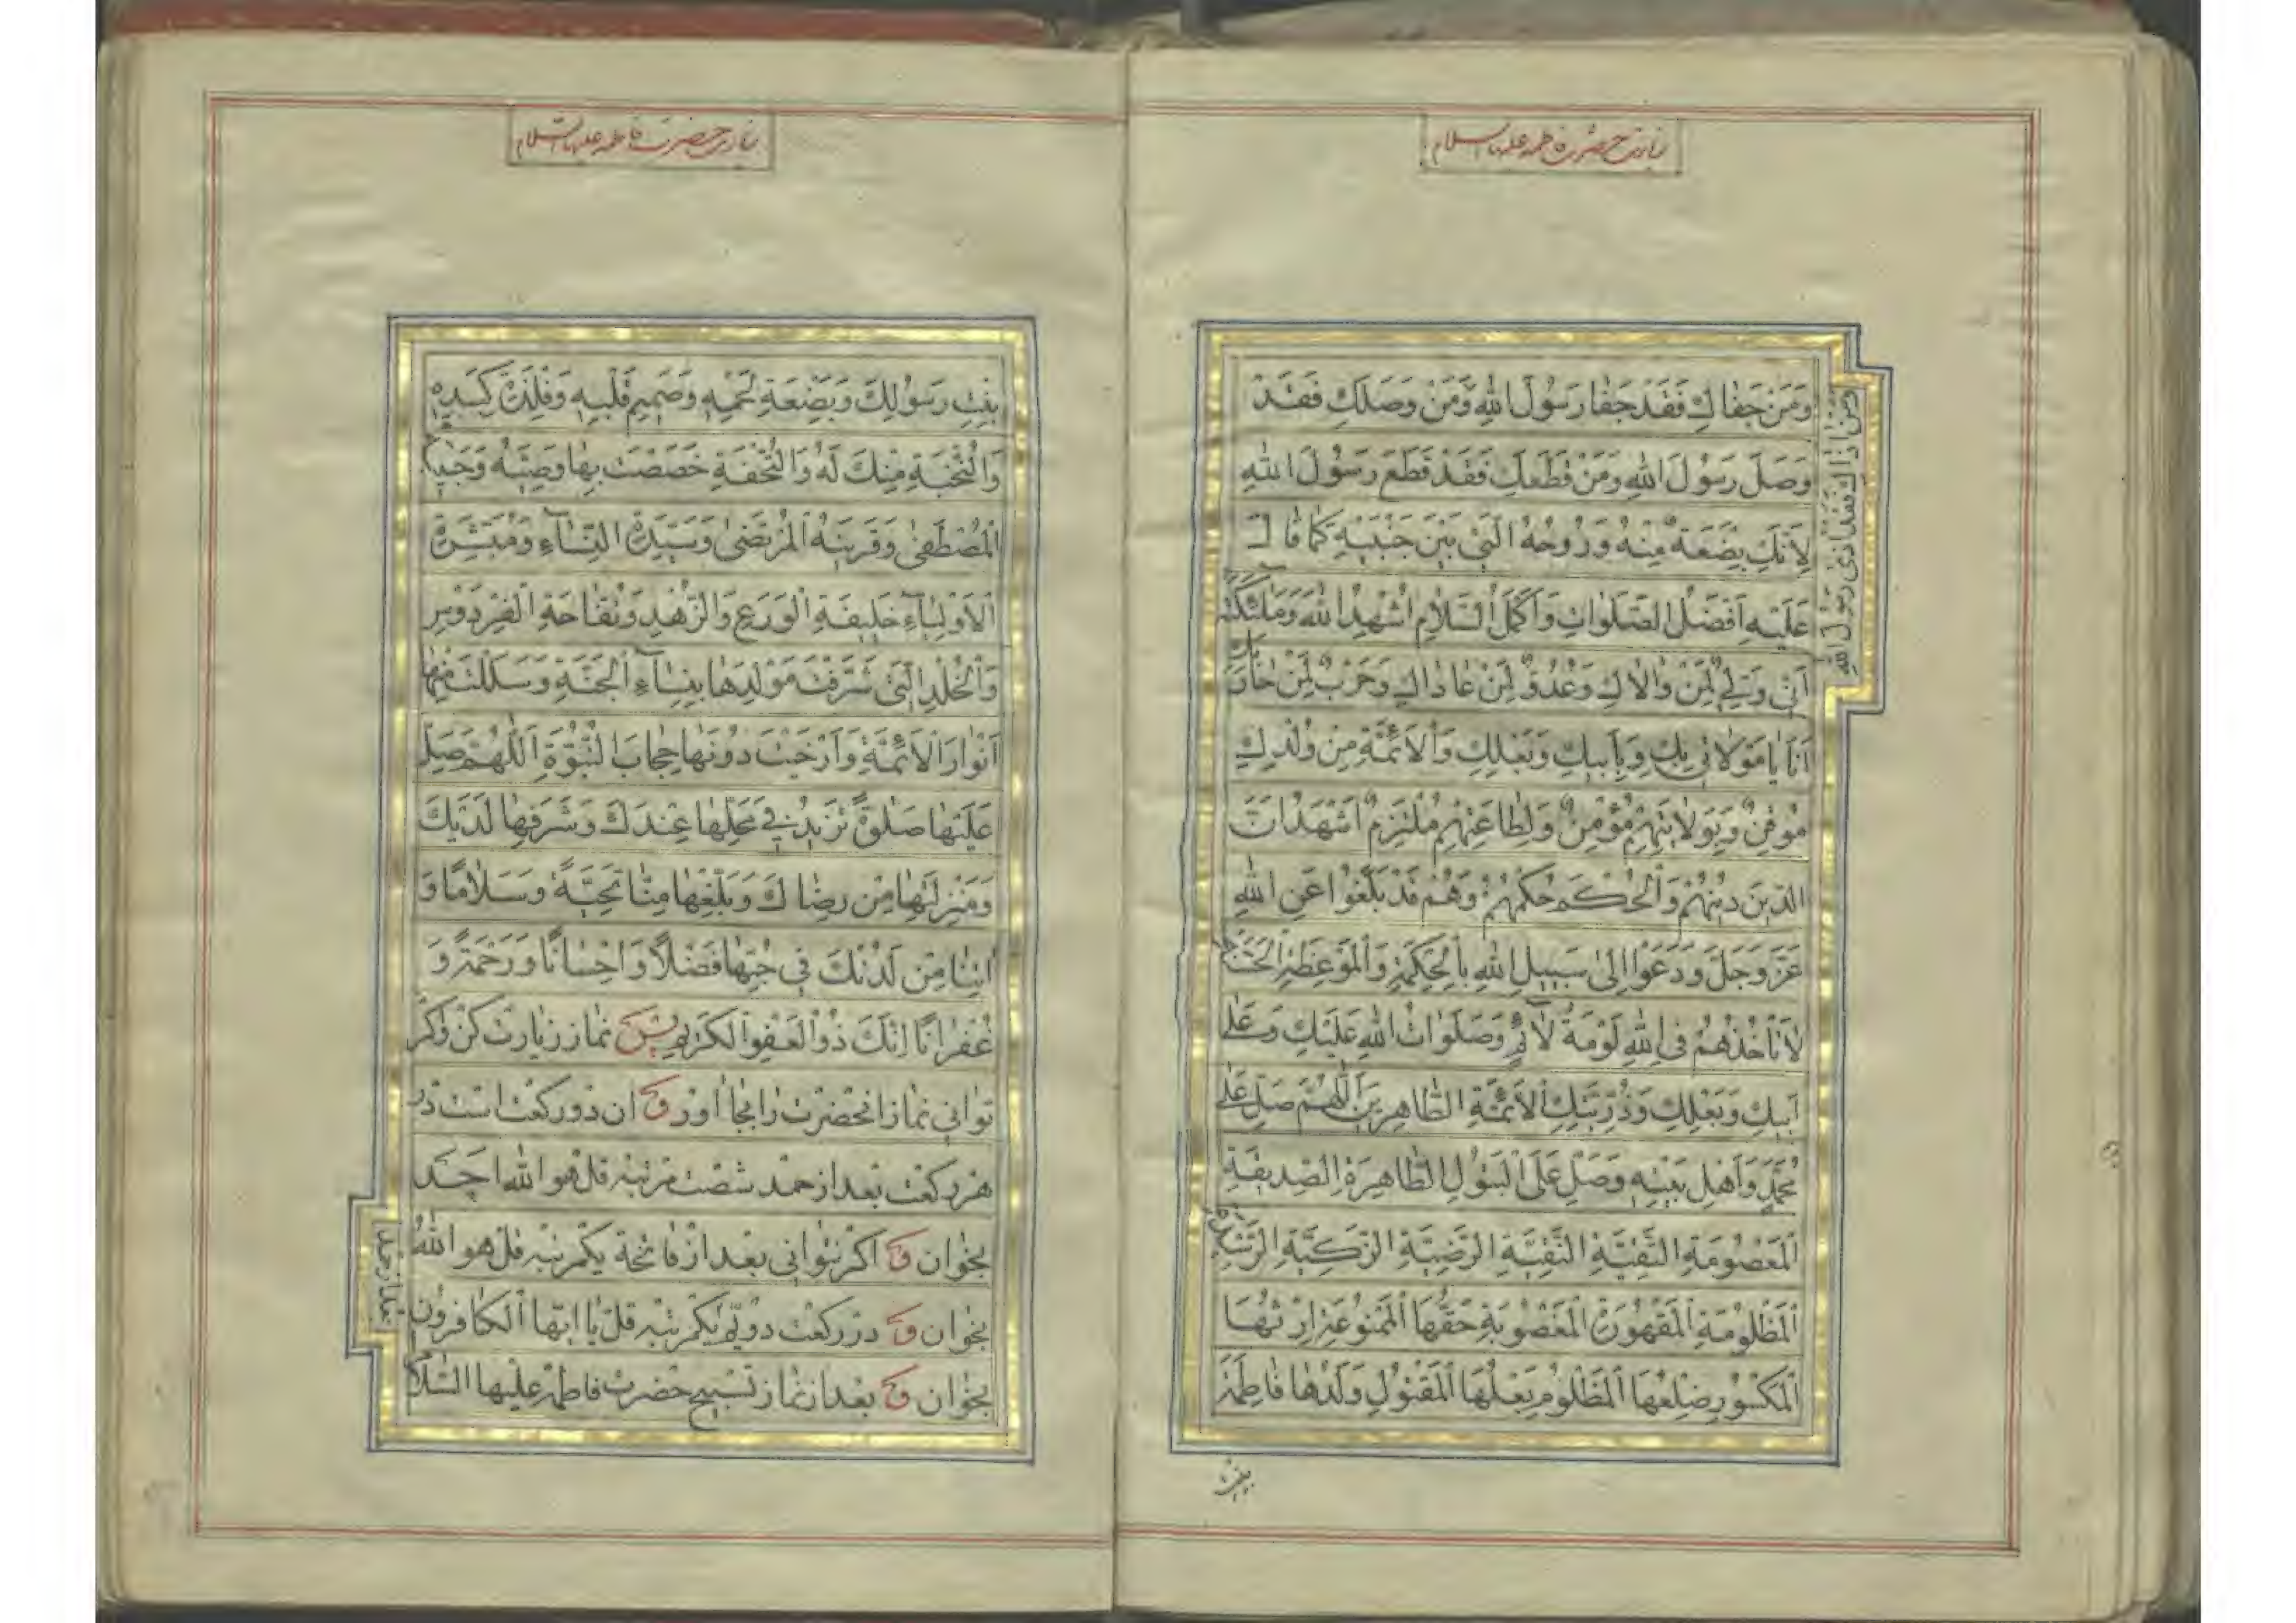 زیارت حضرت فاطمه علیها السلام
وَمَنْ جَفاكِ فَقَدْ جَفا رَسُولَ اللهِ وَمَنْ وَصَلَكِ فَقَدْ
وَصَلَ رَسُولَ اللهِ وَمَنْ قَطَعَكِ فَقَدْ قَطَعَ رَسُولَ اللهِ
لِاَنَّكِ بِضْعَةٌ مِنْهُ وَرُوحُهُ الَّتِي بَيْنَ جَنْبَيْهِ كَما قالَ
عَلَيْهِ اَفْضَلُ الصَّلَواتِ وَاَكْمَلُ السَّلامِ اُشْهِدُ اللهَ وَمَلٰئِكَتَهُ
اَنّي وَلِيٌّ لِمَنْ والاكِ وَعَدُوٌّ لِمَنْ عاداكِ وَحَرْبٌ لِمَنْ حارَبَكِ
اَنَا يا مَوْلاتي بِكِ وَبِاَبيكِ وَبَعْلِكِ وَالْاَئِمَّةِ مِنْ وُلْدِكِ
مُوقِنٌ وَبِوَلايَتِهِمْ مُؤْمِنٌ وَلِطاعَتِهِمْ مُلْتَزِمٌ اَشْهَدُ اَنَّ
الدّينَ دينُهُمْ وَالْحُكْمَ حُكْمُهُمْ وَهُمْ قَدْ بَلَّغُوا عَنِ اللهِ
عَزَّ وَجَلَّ وَدَعَوْا اِلىٰ سَبيلِ اللهِ بِالْحِكْمَةِ وَالْمَوْعِظَةِ الْحَسَنَةِ
لا تَأْخُذُهُمْ فِي اللهِ لَوْمَةُ لآئِمٍ وَصَلَواتُ اللهِ عَلَيْكِ وَعَلىٰ
اَبيكِ وَبَعْلِكِ وَذُرِّيَّتِكِ الْاَئِمَّةِ الطّاهِرينَ اَللّٰهُمَّ صَلِّ عَلىٰ
مُحَمَّدٍ وَاَهْلِ بَيْتِهِ وَصَلِّ عَلَى الْبَتُولِ الطّاهِرَةِ الصِّدّيقَةِ
الْمَعْصُومَةِ التَّقِيَّةِ النَّقِيَّةِ الرَّضِيَّةِ الزَّكِيَّةِ الرَّشيدَةِ
الْمَظْلُومَةِ الْمَقْهُورَةِ الْمَغْصُوبَةِ حَقُّهَا الْمَمْنُوعَةِ اِرْثُهَا
الْمَكْسُورِ ضِلْعُهَا الْمَظْلُومِ بَعْلُهَا الْمَقْتُولِ وَلَدُها فاطِمَةَ
وَمَنْ اٰذاكِ فَقَدْ اٰذىٰ رَسُولَ اللهِ
بنت
زیارت حضرت فاطمه علیها السلام
بِنْتِ رَسُولِكَ وَبَضْعَةِ لَحْمِهِ وَصَميمِ قَلْبِهِ وَفِلْذَةِ كَبِدِهِ
وَالنُّخْبَةِ مِنْكَ لَهُ وَالتُّحْفَةِ خَصَصْتَ بِها وَصِيَّهُ وَحَبيبَةِ
الْمُصْطَفىٰ وَقَرينَةِ الْمُرْتَضىٰ وَسَيِّدَةِ النِّسآءِ وَمُبَشِّرَةِ
الْاَوْلِيآءِ حَليفَةِ الْوَرَعِ وَالزُّهْدِ وَتُفّاحَةِ الْفِرْدَوْسِ
وَالْخُلْدِ الَّتي شَرَّفْتَ مَوْلِدَها بِنِسآءِ الْجَنَّةِ وَسَلَلْتَ مِنْها
اَنْوارَ الْاَئِمَّةِ وَاَرْخَيْتَ دُونَها حِجابَ النُّبُوَّةِ اَللّٰهُمَّ صَلِّ
عَلَيْها صَلٰوةً تَزيدُ في مَحَلِّها عِنْدَكَ وَشَرَفِها لَدَيْكَ
وَمَنْزِلَتِها مِنْ رِضاكَ وَبَلِّغْها مِنّا تَحِيَّةً وَسَلامًا وَ
اٰتِنا مِنْ لَدُنْكَ في حُبِّها فَضْلاً وَاِحْسانًا وَرَحْمَةً وَ
غُفْرانًا اِنَّكَ ذُو الْعَفْوِ الْكَريمِ پس نماز زیارت کن و کر
توانی نماز انحضرت را بجا اور و ان دو رکعت است در
هر رکعت بعد از حمد شصت مرتبه قل هو الله احد
بخوان و اکر نتوانی بعد از فاتحة یکمرتبه قل هو الله
بخوان و در رکعت دوّیم یکمرتبه قل یا ایها الکافرون
بخوان و بعد از نماز تسبیح حضرت فاطمة علیها السلام
بعد از حمد